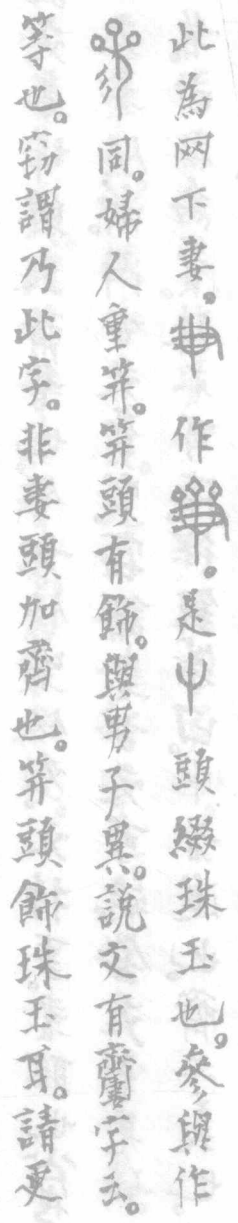 此為网下妻。作。是屮頭綴珠玉也。參與作
同。婦人重笄。笄頭有飾。與男子異。說文有字云。
等也。竊謂乃此字。非妻頭加齊也。笄頭飾珠玉耳。請更